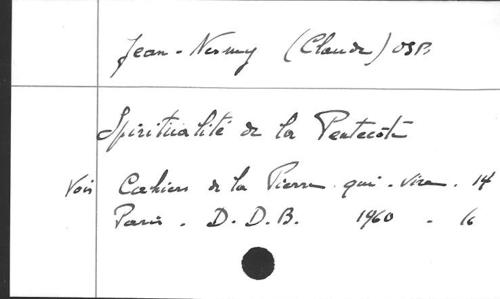 Jean-Nesmy (Claude) OSB.
Spiritualité de la Pentecôte
Voir Cahiers de la Pierre-qui-vire. 14
Paris. D. D. B. 1960 - 16